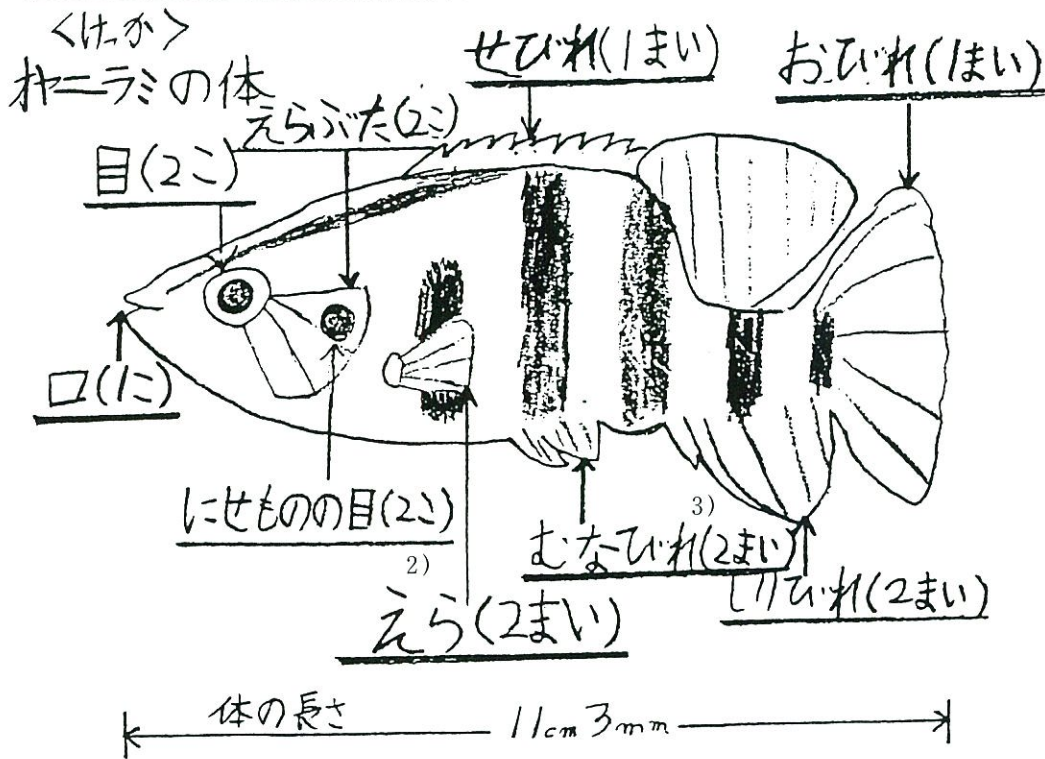 <けっか>
オヤニラミの体
せびれ(1まい)
おびれ(1まい)
えらぶた(2こ)
目(2こ)
口(1こ)
にせものの目(2こ)
2)
3)
むなびれ(2まい)
しりびれ(2まい)
えら(2まい)
体の長さ 11cm3mm